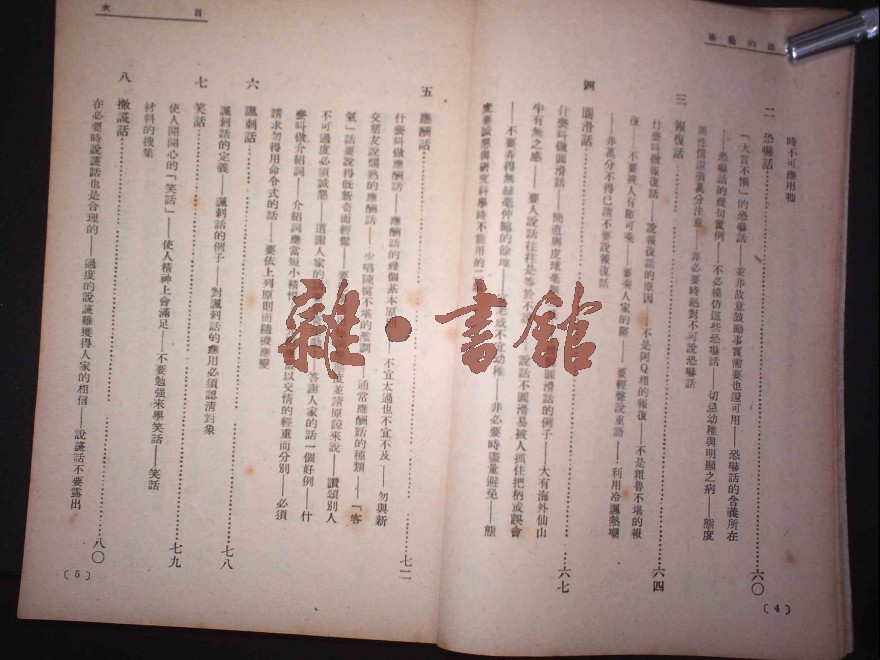 時不可應用牠
二 恐嚇話……六〇
「大言不慚」的恐嚇話——並非故意鼓勵事實需要也還可用——恐嚇話的含義所在
——恐嚇話的幾句實例——不必模仿這些恐嚇話——切忌幼稚與明顯之病——態度
與性情須萬分注意——非必要時絕對不可說恐嚇話
三 報復話……六四
什麼叫做報復話——說報復話的原因——不是阿Q相的報復——不是粗魯不堪的報
復——不要被人有隙可乘——要乘人家的隙——要輕聲說重話——利用冷諷熱嘲
——非萬分不得已請不要說報復話
四 圓滑話……六七
什麼叫做圓滑話——簡直與皮球 圓滑話的例子——大有海外仙山
半有無之感——要人說話往往是等於不 說話不圓滑易被人抓住把柄或誤會
——不要弄得無絲毫伸縮的餘地—— 老成不宜幼稚——非必要時儘量避免——態
度要誠懇與研究科學時不能用的
(4)
目 次
五 應酬話……七二
什麼叫做應酬話——應酬話的幾個基本原則——不宜太過也不宜不及——勿與新
交朋友說爛熟的應酬話——少唱陳腐不堪的濫調——通常應酬話的種類——「客
氣」話要說得旣新奇而輕鬆——要 態度並請原諒來說——讚頌別人
不可過度必須誠懇——道謝人家的 ——答謝人家的話一個好例——什
麼叫做介紹詞——介紹詞應當短小精悍 當以交情的輕重而分別——必須
請求勿得用命令式的話——要依上列原則而隨機應變
六 諷刺話……七八
諷刺話的定義——諷刺話的例子——對諷刺話的應用必須認清對象
七 笑話……七九
使人開開心的「笑話」——使人精神上會滿足——不要勉强來學笑話——笑話
材料的搜集
八 撒謊話……八〇
在必要時說謊話也是合理的——過度的說謊難獲得人家的相信——說謊話不要露出
(5)
雜·書館